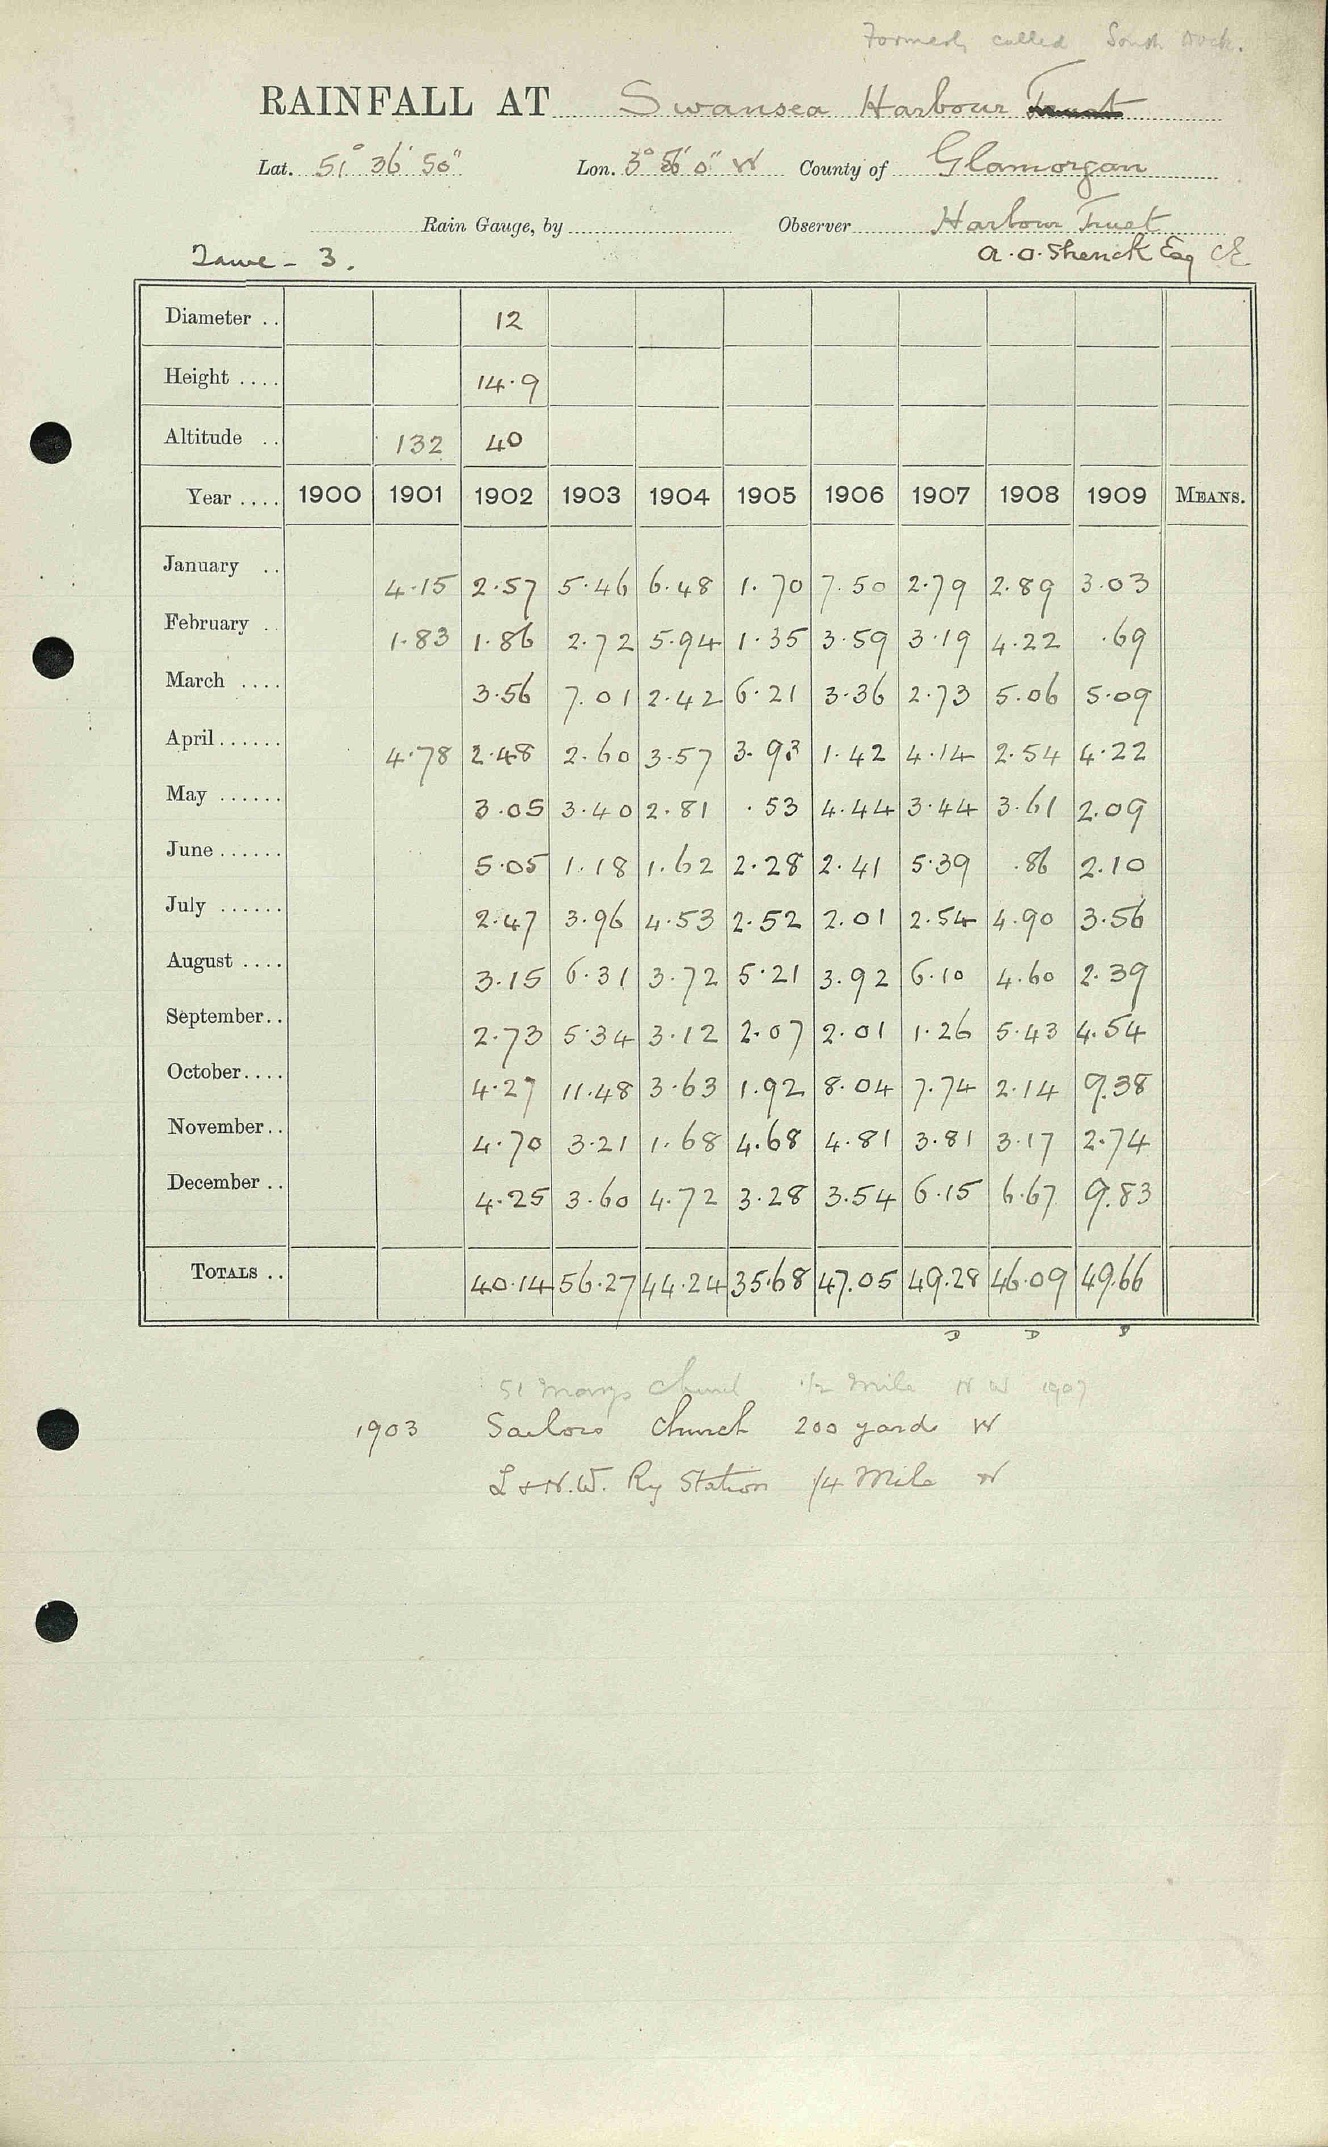 Formerly called South Dock.
RAINFALL AT Swansea Harbour Trust
Lat. 51° 36' 50" Lon. 3° 56' 0" W County of Glamorgan
Rain Gauge, by Observer Harbour Trust
Tawe - 3. A. O. Shenck Esq CE
Diameter .. 12
Height .... 14.9
Altitude .. 132 40
Year .... 1900 1901 1902 1903 1904 1905 1906 1907 1908 1909 MEANS.
January .. 4.15 2.57 5.46 6.48 1.70 7.50 2.79 2.89 3.03
February .. 1.83 1.86 2.72 5.94 1.35 3.59 3.19 4.22 .69
March .... 3.56 7.01 2.42 6.21 3.36 2.73 5.06 5.09
April...... 4.78 2.48 2.60 3.57 3.93 1.42 4.14 2.54 4.22
May ...... 3.05 3.40 2.81 .53 4.44 3.44 3.61 2.09
June...... 5.05 1.18 1.62 2.28 2.41 5.39 .86 2.10
July ...... 2.47 3.96 4.53 2.52 2.01 2.54 4.90 3.56
August .... 3.15 6.31 3.72 5.21 3.92 6.10 4.60 2.39
September.. 2.73 5.34 3.12 2.07 2.01 1.26 5.43 4.54
October.... 4.27 11.48 3.63 1.92 8.04 7.74 2.14 9.38
November.. 4.70 3.21 1.68 4.68 4.81 3.81 3.17 2.74
December .. 4.25 3.60 4.72 3.28 3.54 6.15 6.67 9.83
TOTALS .. 40.14 56.27 44.24 35.68 47.05 49.28 46.09 49.66
D D D
St Marys Church 1/2 Mile N W 1907
1903 Sailors Church 200 yards W
L & N.W. Ry Station 1/4 Mile W